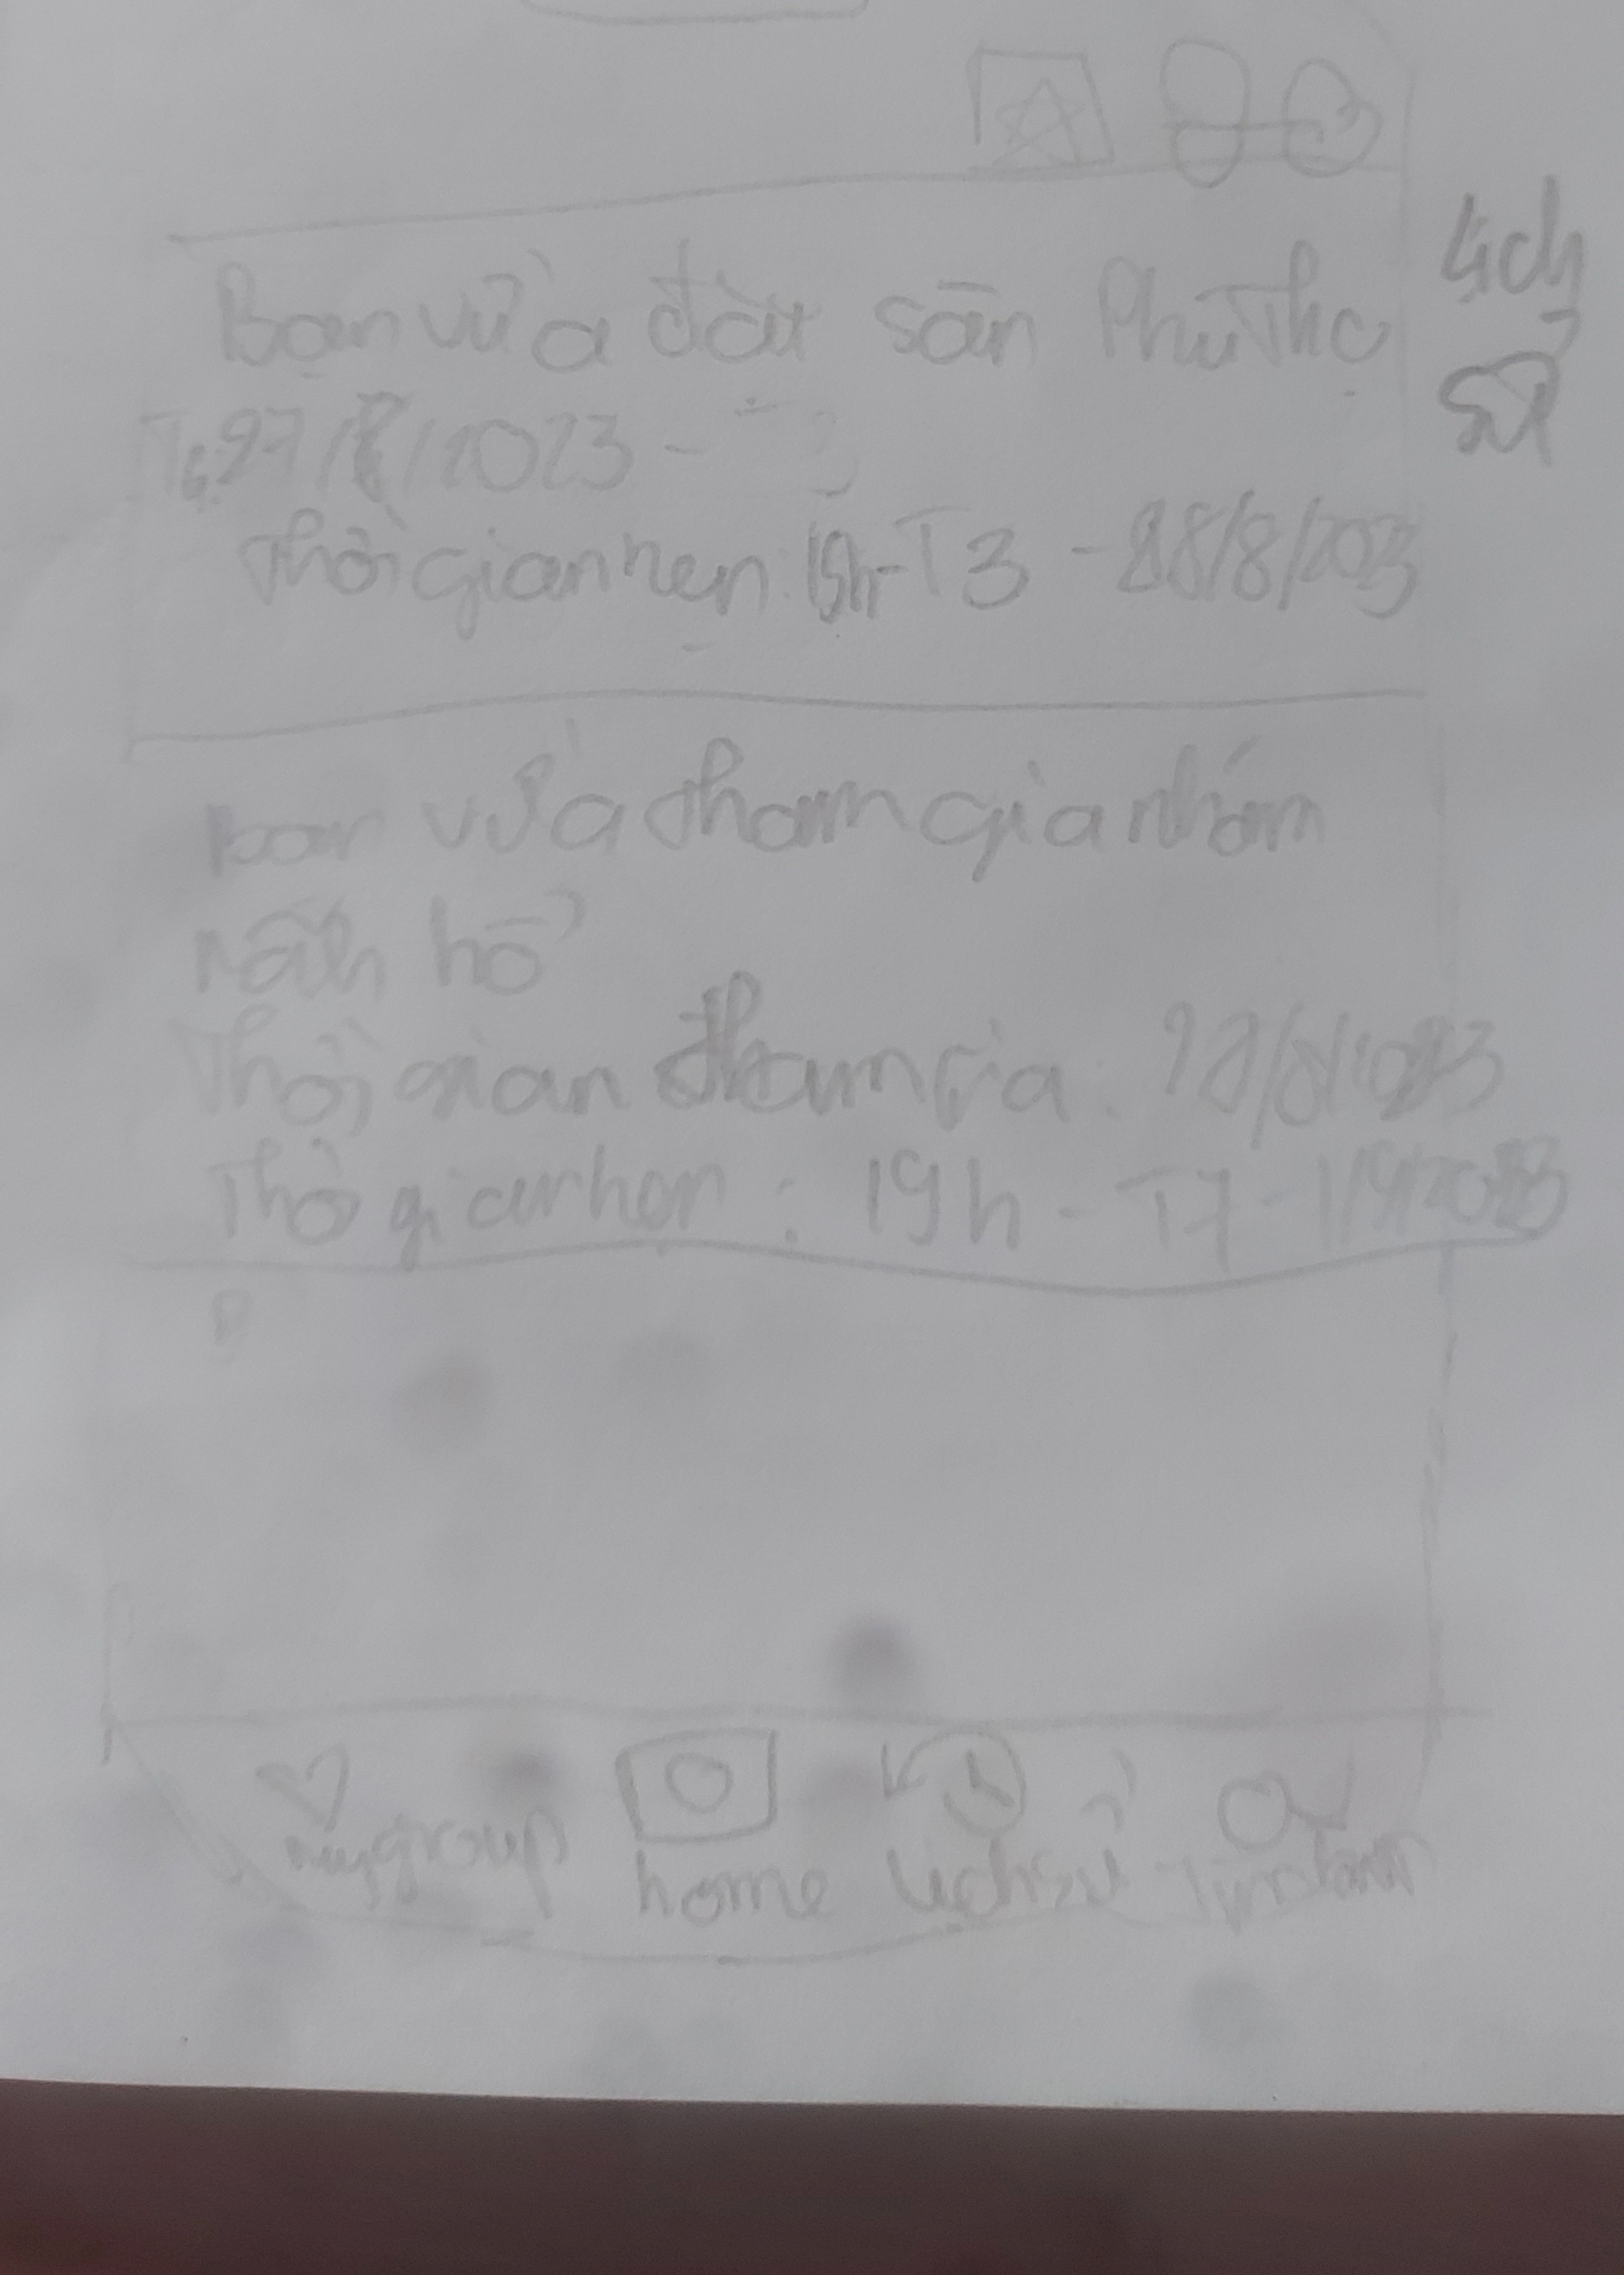 Lịch
sử
Bạn vừa đặt sân Phú Thọ
27/8/2023 -
Thời gian hẹn: 19h - T3 - 28/8/2023
Bạn vừa tham gia nhóm
hổ
Thời gian tham gia: /8/2023
Thời gian hẹn: 19h - T7 - 1/9/2023
my group home Lịch sử